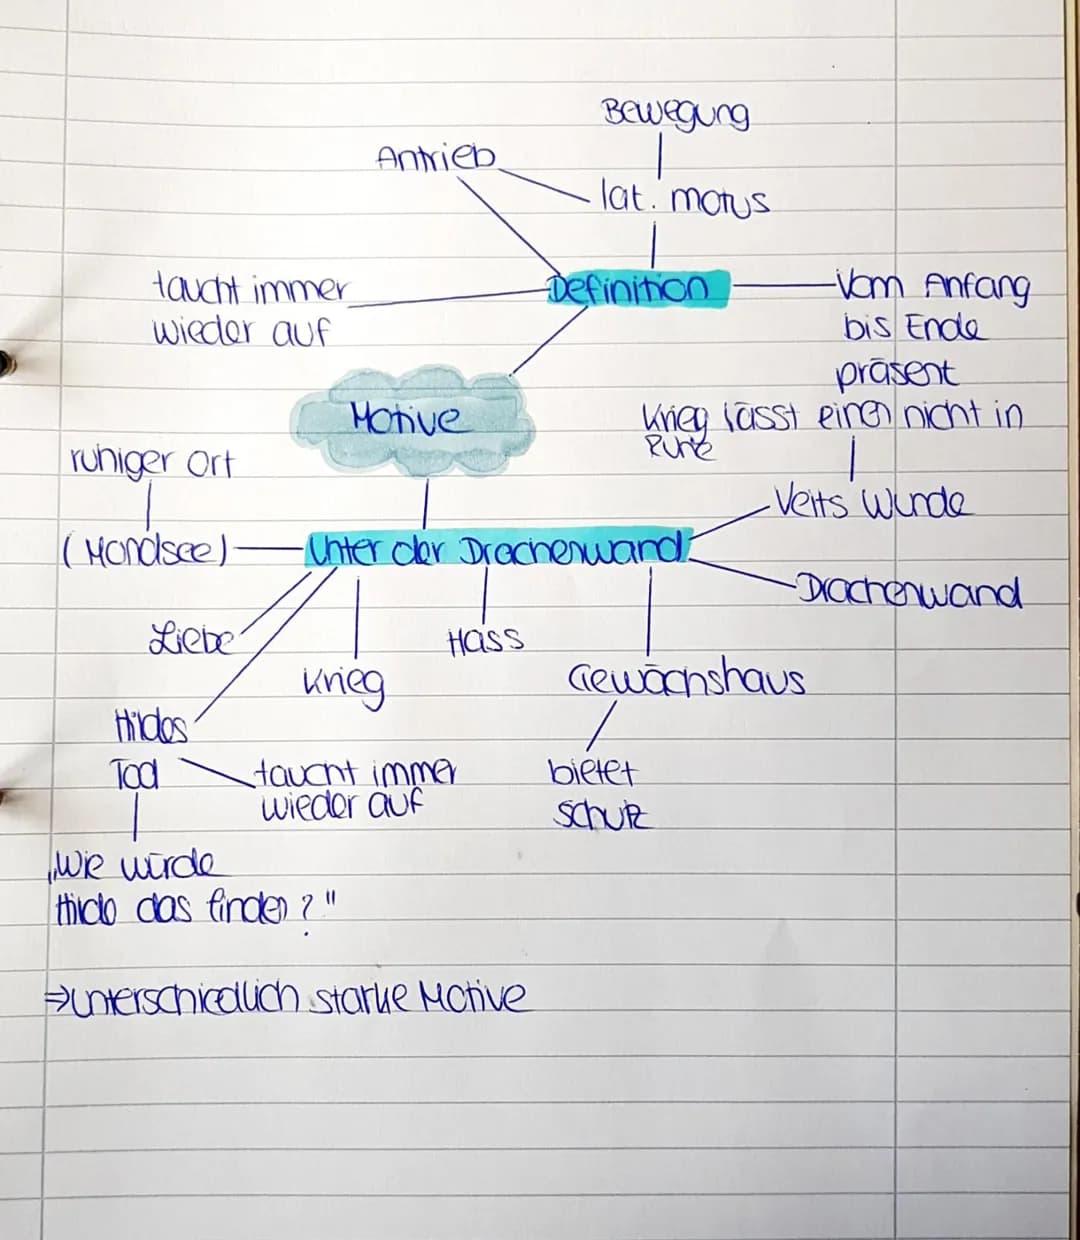 Bewegung
Antrieb
lat. motus
Definition
taucht immer
wieder auf
Vom Anfang
bis Ende
präsent
Motive
Krieg lässt einen nicht in
Ruhe
ruhiger Ort
Veits Wunde
(Mondsee)
Unter der Drachenwand
Drachenwand
Liebe
Hass
Krieg
Gewächshaus
Hildes
Tod
taucht immer
wieder auf
bietet
Schutz
„Wie würde
Hilde das finden?"
⇒unterschiedlich starke Motive